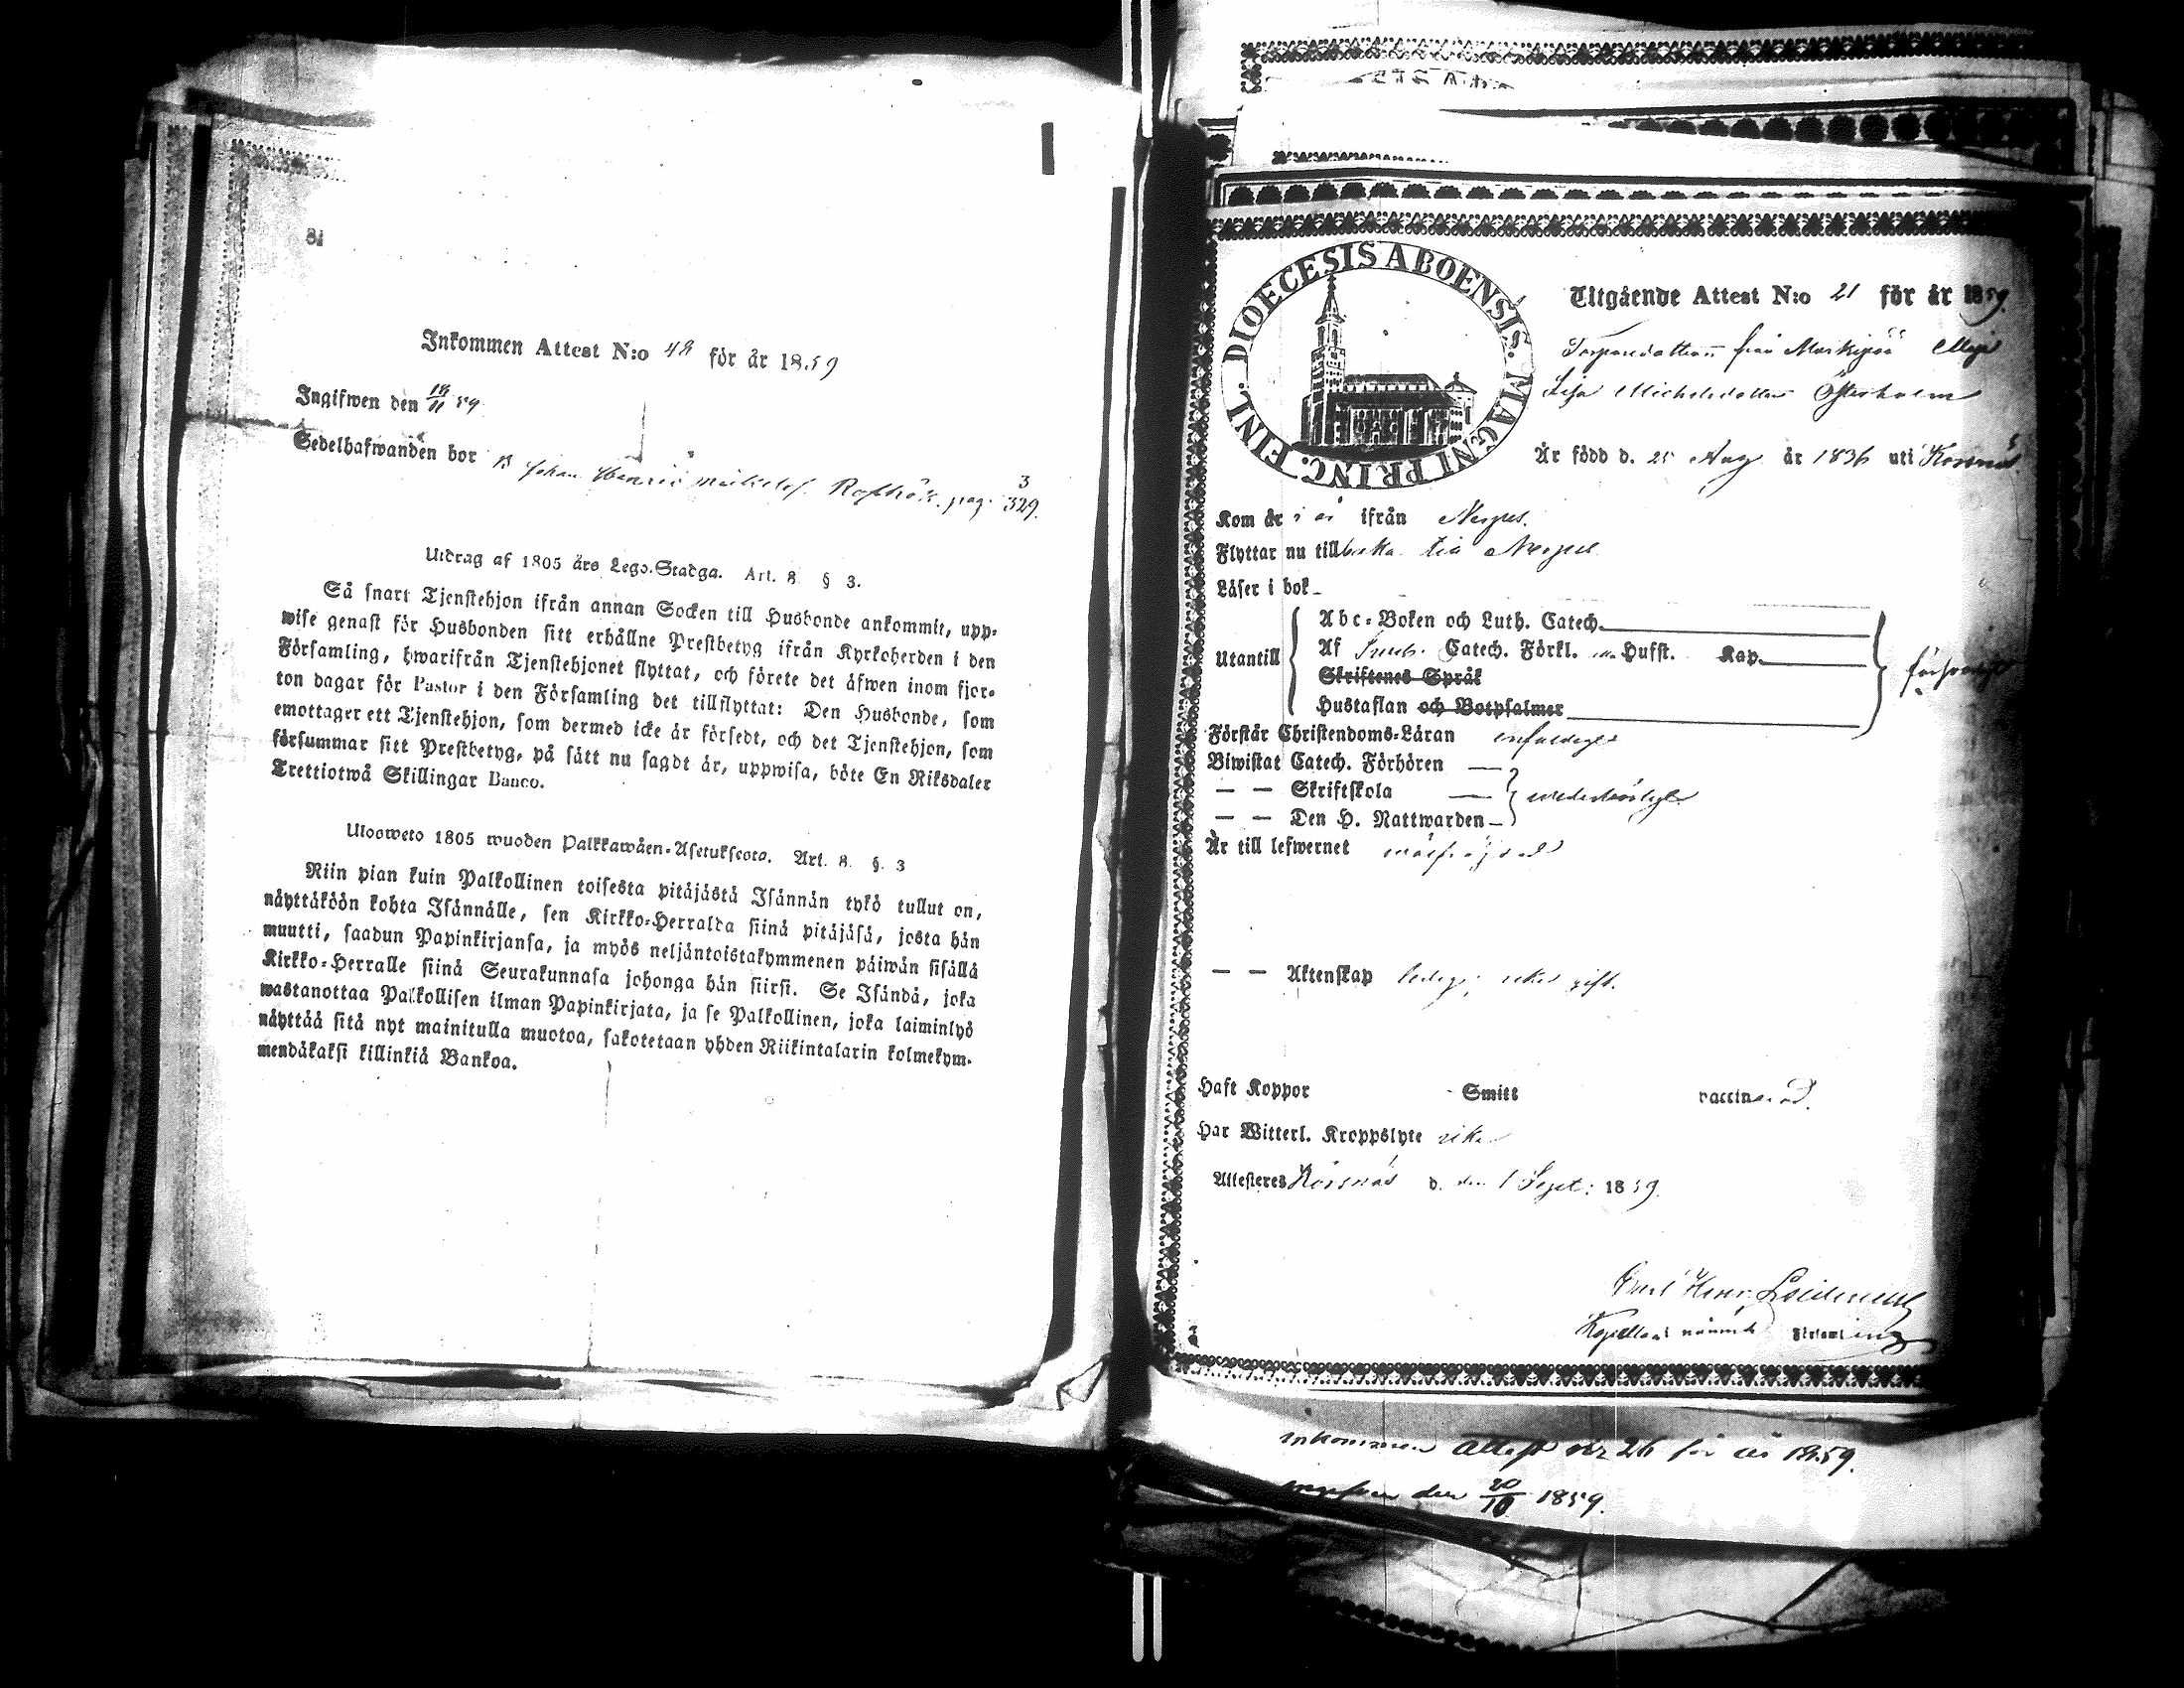 81
Inkommen Attest N:o 48 för år 1859
Ingifwen den 18/11 59
Sedelhafwanden bor B Johan Henric pag. 329.
3
Utdrag af 1805 års Lego-Stadga. Art. 8 § 3.
Så snart Tjenstehjon ifrån annan Socken till Husbonde ankommit, upp-
wise genast för Husbonden sitt erhållne Prestbetyg ifrån Kyrkoherden i den
Församling, hwarifrån Tjenstehjonet flyttat, och förete det åfwen inom fjor-
ton dagar för Pastor i den Församling det tillflyttat: Den Husbonde, som
emottager ett Tjenstehjon, som dermed icke är försedt, och det Tjenstehjon, som
försummar sitt Prestbetyg, på sätt nu sagdt är, uppwisa, böte En Riksdaler
Trettiotwå Skillingar Banco.
Ulosweto 1805 wuoden Palkkawäen-Asetuksesta. Art. 8. §. 3
Niin pian kuin Palkollinen toisesta pitäjästä Isännän tykö tullut on,
näyttäköön kohta Isännälle, sen Kirkko-Herralda siinä pitäjäsä, josta hän
muutti, saadun Papinkirjansa, ja myös neljäntoistakymmenen päiwän sisällä
Kirkko-Herralle siinä Seurakunnasa johonga hän siirsi. Se Isändä, joka
wastanottaa Palkollisen ilman Papinkirjata, ja se Palkollinen, joka laiminlyö
näyttää sitä nyt mainitulla muotoa, sakotetaan yhden Riikintalarin kolmekym-
mendäkaksi killinkiä Bankoa.
DIOECESIS ABOENSIS. MAGNI PRINC. FINL.
Utgående Attest N:o 21 för år 1859.
Torparedottren från Moikipää Maja
Lisa Michelsdotter Österholm
Är född d. 25 Aug år 1836 uti Korsnäs
Kom år i år ifrån Nerpes.
Flyttar nu tillbaka till Nerpes
Läser i bok
Utantill
Abc-Boken och Luth. Catech.
Af Sweb. Catech. Förkl. Husst. Kap.
Skriftenes Språk
Hustaflan och Botpsalmer
förswarligt
Förstår Christendoms-Läran enfaldigt
Biwistat Catech. Förhören
— — Skriftskola
— — Den H. Nattwarden
wederbörligt
Är till lefwernet wälfrejdad
— — Äktenskap ledig; icke gift.
Haft Koppor Smitt vaccinerad.
Har Witterl. Kroppslyte icke
Attesteres Korsnäs d. den 1 Sept: 1859.
Kapellan i nämnde Församling
Inkommen Attest Nr 26 för år 1859.
ingifven den 20/10 1859.